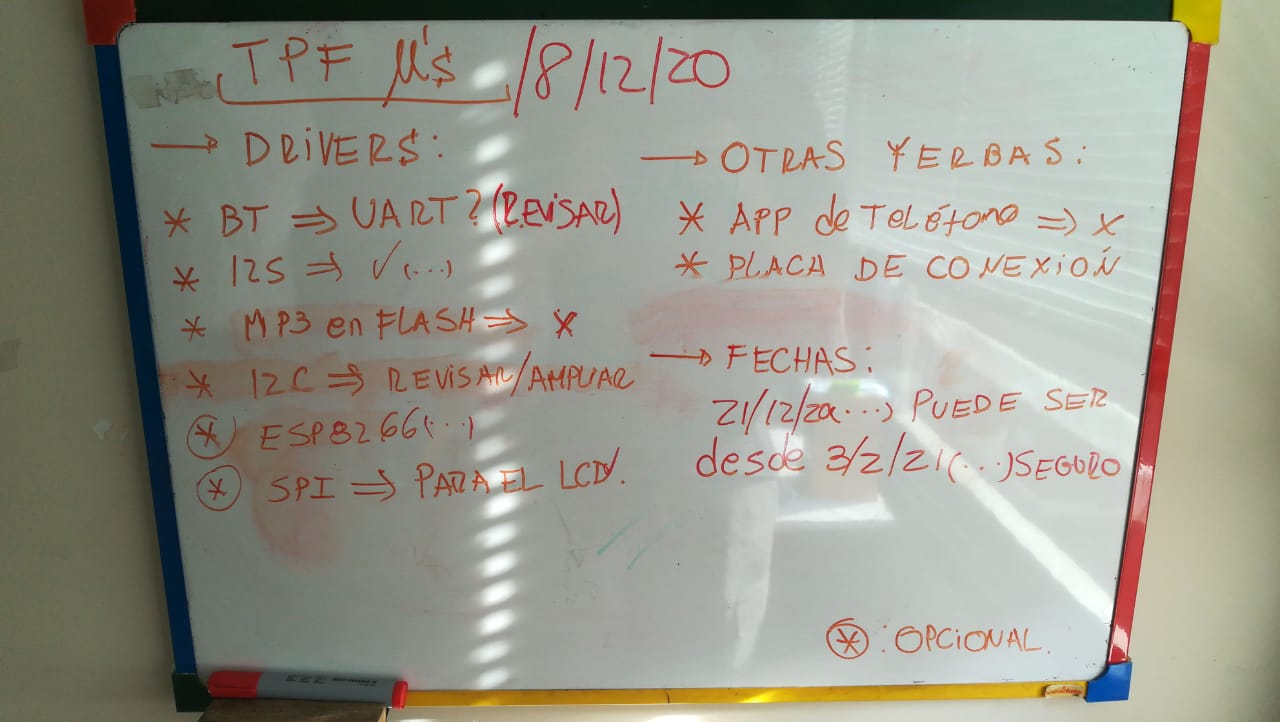 TPF µ's /8/12/20
→ DRIVERS:
* BT ⇒ UART? (REVISAR)
* I2S ⇒ ✓ (...)
* MP3 en FLASH ⇒ x
* I2C ⇒ REVISAR/AMPLIAR
⊛ ESP8266 (...)
⊛ SPI ⇒ PARA EL LCD.
→ OTRAS YERBAS:
* APP de Teléfono ⇒ x
* PLACA DE CONEXIÓN
→ FECHAS:
21/12/20(...) PUEDE SER
desde 3/2/21 (...) SEGURO
⊛: OPCIONAL.